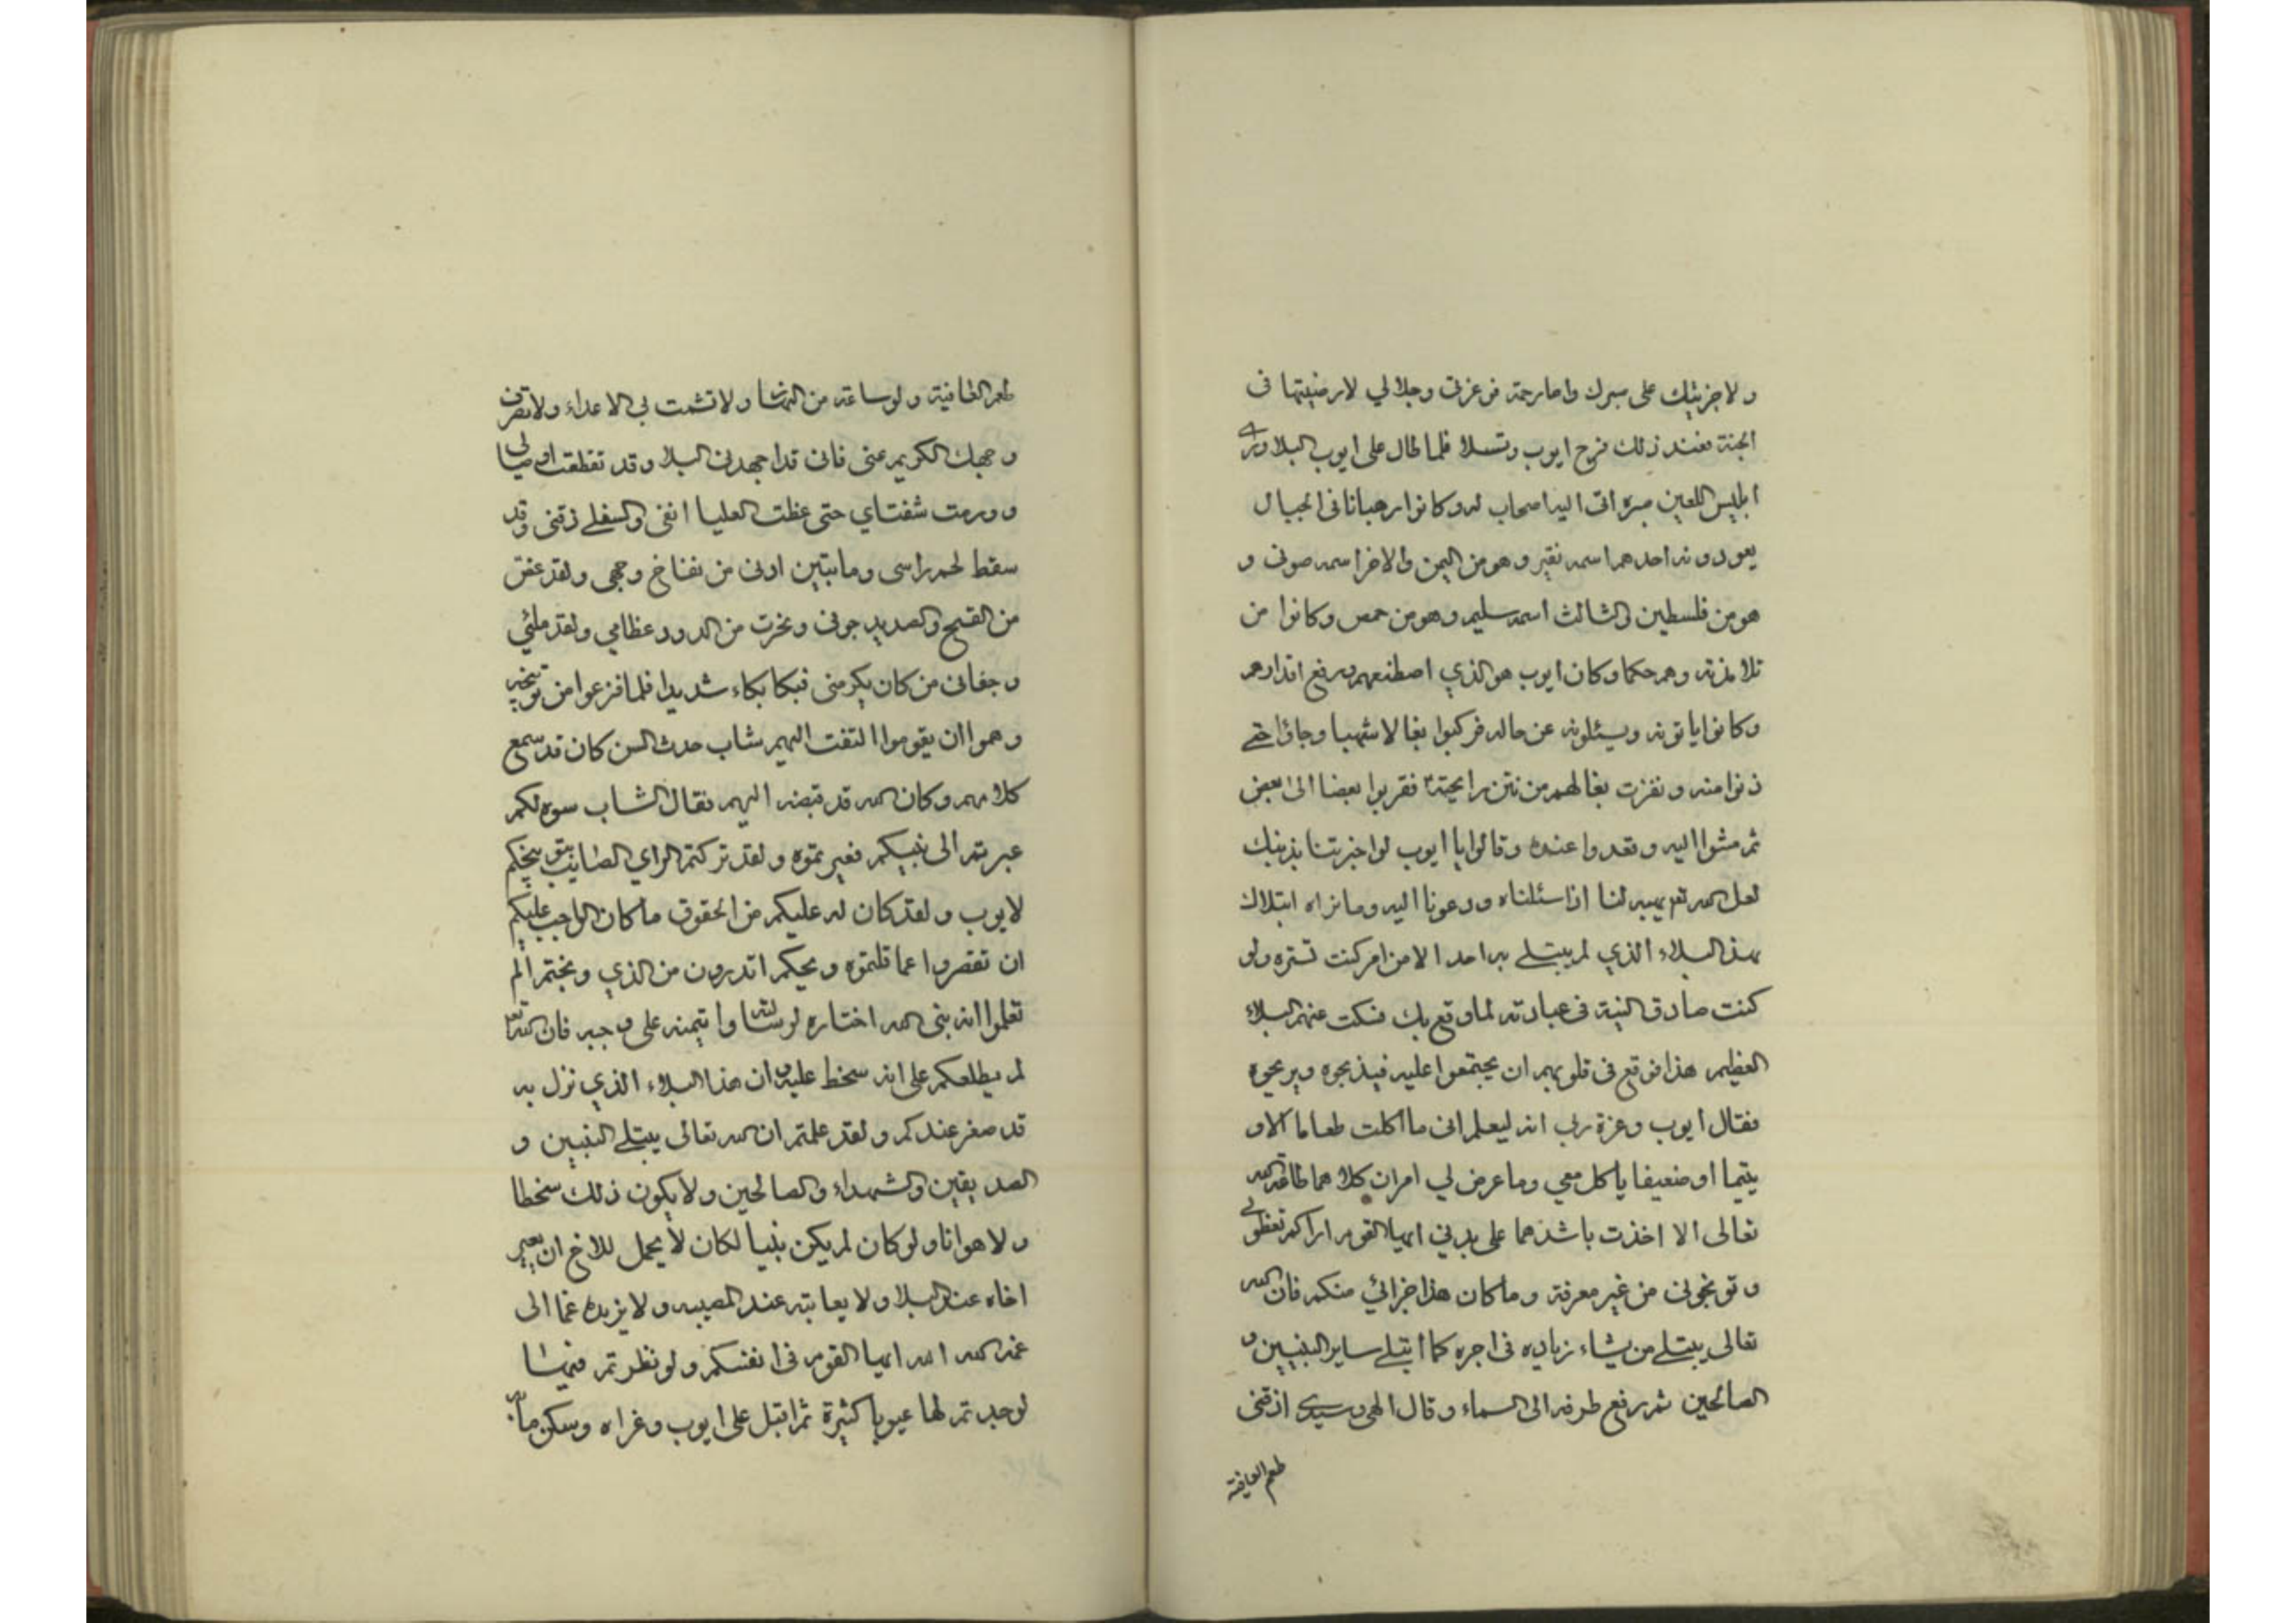 ولاجزينك على صبرك واما رحمة فوعزتي وجلالي لارضيتها في
الجنة فعند ذلك فرح ايوب وتسلا فلما طال على ايوب البلا وراى
ابليس اللعين صبره اتى اليه اصحاب له وكانوا رهبانا في الجبال
يعودونه احدهم اسمه نقير وهو من اليمن والاخر اسمه صوفي و
هو من فلسطين والثالث اسمه سليم وهو من حمص وكانوا من
تلامذته وهم حكما وكان ايوب هو الذي اصطنعهم ورفع اقدارهم
وكانوا ياتونه ويسئلونه عن حاله فركبوا بغالا شهبا وجاؤا حتى
دنوا منه ونفرت بغالهم من نتن رايحته فقربوا بعضا الى بعض
ثم مشوا اليه وقعدوا عنده وقالوا يا ايوب لو اخبرتنا بذنبك
لعل الله تع يهبه لنا اذا سئلناه ودعونا اليه وما نراه ابتلاك
بهذا البلاء الذي لم يبتلى به احد الا من امر كنت تستره ولو
كنت صادق النية في عبادته لما وقع بك فسكت عنهم البلاء
العظيم هذا فوقع في قلوبهم ان يجتمعوا عليه فيذبحوه ويريحوه
فقال ايوب وعزة ربي انه ليعلم اني ما اكلت طعاما الا و
يتيما او ضعيفا ياكل معي وما عرض لي امران كلاهما طاقة الله
تعالى الا اخذت باشدهما على بدني ايها القوم اراكم تعظوني
وتوبخوني من غير معرفة وما كان هذا جزائي منكم فان الله
تعالى يبتلى من يشاء زياده في اجره كما ابتلى ساير النبيين و
الصالحين ثم رفع طرفه الى السماء وقال الهي وسيدي اذقني
طعم العافية
طعم العافية ولو ساعة من النهار ولا تشمت بي الاعداء ولا تصرف
وجهك الكريم عني فاني قد اجهدني البلا وقد تقطعت اوصالي
وورمت شفتاي حتى غطت العليا انفي والسفلى ذقني وقد
سقط لحم راسي وما تبين اذني من نفاخ وجهي ولقد غض
من القيح والصديد جوفي ونخرت من الدود عظامي ولقد ملني
وجفاني من كان يكرمني فبكا بكاء شديدا فلما فزعوا من توبيخه
وهموا ان يقوموا التفت اليهم شاب حدث السن كان قد سمع
كلامهم وكان الله قد قبضه اليهم فقال الشاب سوه لكم
عبرتم الى نبيكم فعيرتموه ولقد تركتم الراي الصايب بتوبيخكم
لايوب ولقد كان له عليكم من الحقوق ما كان الواجب عليكم
ان تقصروا عما قلتموه ويحكم اتدرون من الذي وبختم الم
تعلموا انه نبي الله اختاره لرسالته وائتمنه على وحيه فان الله تع
لم يطلعكم على انه سخط عليه وان هذا البلاء الذي نزل به
قد صغر عندكم ولقد علمتم ان الله تعالى يبتلى النبيين و
الصديقين والشهداء والصالحين ولا يكون ذلك سخطا
ولا هوانا ولو كان لم يكن نبيا لكان لا يحمل للاخ ان يعير
اخاه عند البلا ولا يعاتبه عند المصيبه ولا يزيده غما الى
غمه الله الله ايها القوم في انفسكم ولو نظرتم فيها
لوجدتم لها عيوبا كثيرة ثم اقبل على ايوب وعزاه وسكن ما به